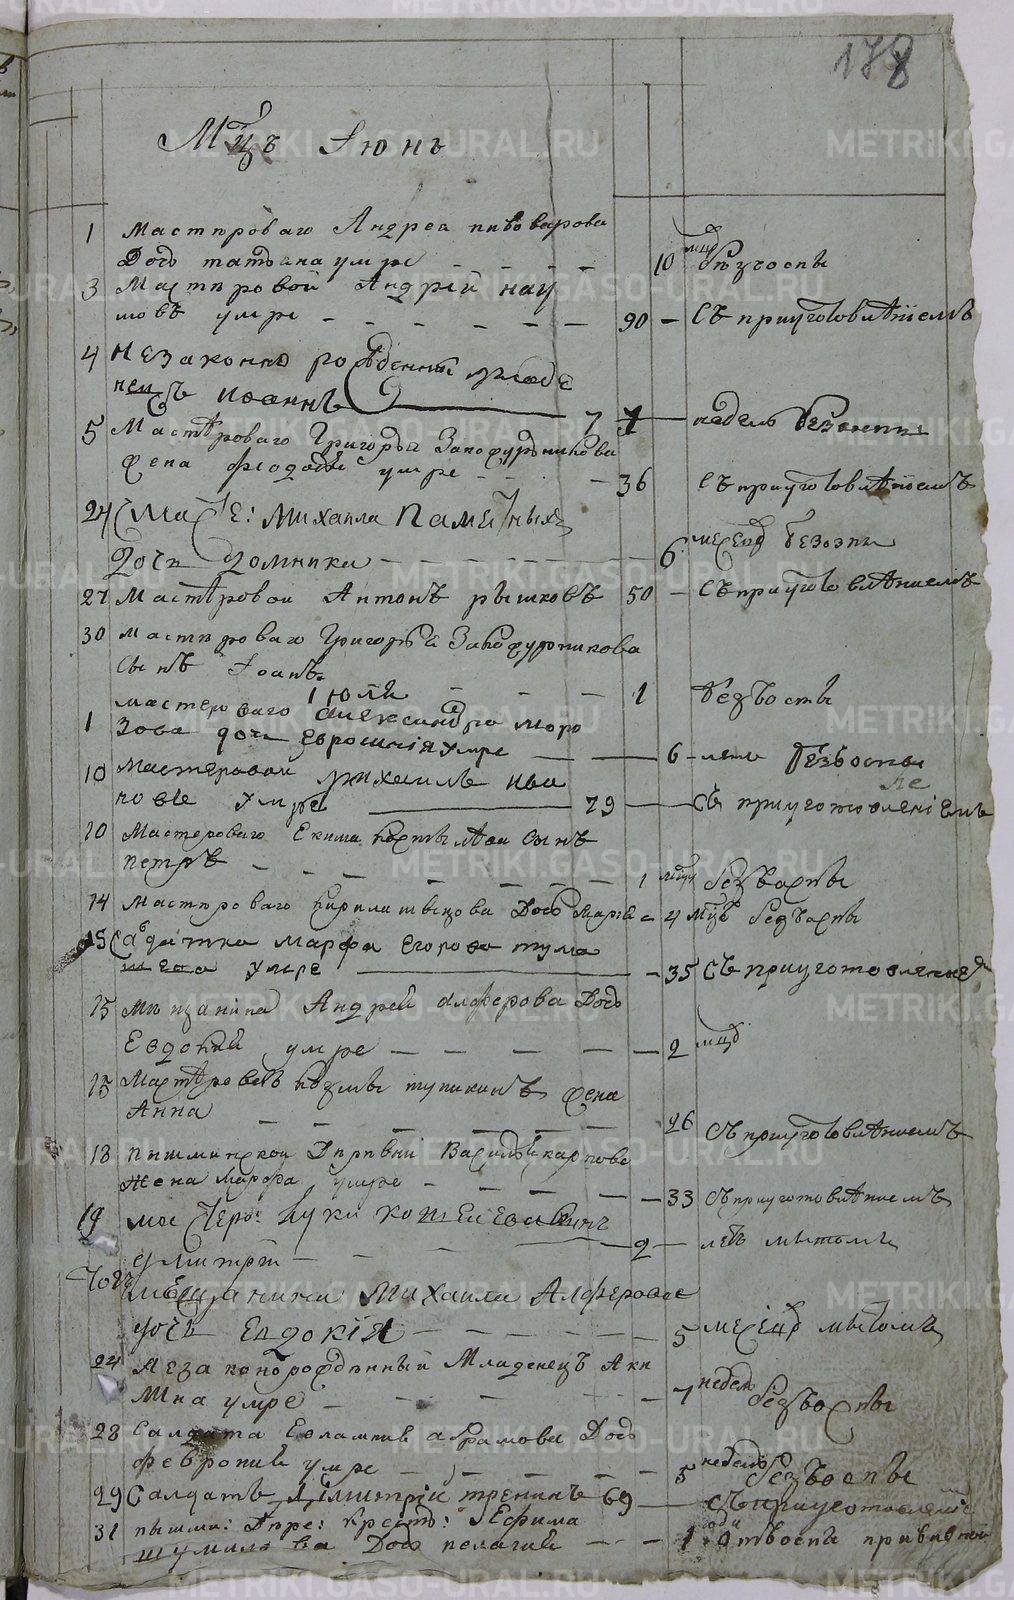 178
Мцъ Iюнь
1 Мастероваго Андреа пивоварова
Дочь татьяна умре — — — — 10 мцъ безъоспы
3 Мастеровой Андрей нау
мовъ умре — — — — — — 90 — Съ приуготовлѣнiемъ
4 незаконно рожденный младе
нецъ иоаннъ — 7 недель безоспы
5 Мастероваго Григорья
жена федосья умре — — — 36 съ приуготовлѣниемъ
24 Масте: Михаила Паметныхъ
дочь домника — — — — 6 месецъ безоспы
27 Мастеровои Антонъ рышковъ 50 — Съ приуготовлѣниемъ
30 мастероваго Григорьѣа
сынъ Iоанъ — — — 1 безъоспы
Iюли
1 мастероваго александра моро
зова дочь Евросинiя умре — 6 — летъ безъоспы
10 мастеровои михаилъ ива
новъ умре — 79 — Съ приуготовленiемъ
10 Мастероваго Екима сынъ
петръ — — — — — — 1 мцъ безъоспы
14 мастероваго кирила швецова Дочь марiя — 4 мцъ безъоспы
15 Салдатка марфа Егорова
умре — 35 Съ приуготовление
15 мещанина Андрей алферова Дочь
Евдокiи умре — — — — — 2 мцъ
15 Мастеровъ козмы тупикинъ жена
Анна — — — — — 26 съ приуготовлѣниемъ
18 пышминской Деревни Василья карпова
жена марфа умре — — — — 33 съприуготовлѣниемъ
19 мастеро: луки сынъ
дмитрiи — — — — 2 — летъ мытомъ
мещанина Михаила Алферова
дочь Евдокiя — — — — — 5 месецъ мытомъ
24 Незаконорожденный Младенецъ Аки
лина умре — — — — 7 недель безъоспы
28 Салдата Евлампия абрамова Дочь
февронии умре — — — — — 5 недель безъоспы
29 Салдатъ Дiмитрiи тренинъ 69 — съприуготовленiе
31 пышми: Дере: крестъ: Ефима
шумилова Дочь пелагии — — — 1 отъоспы